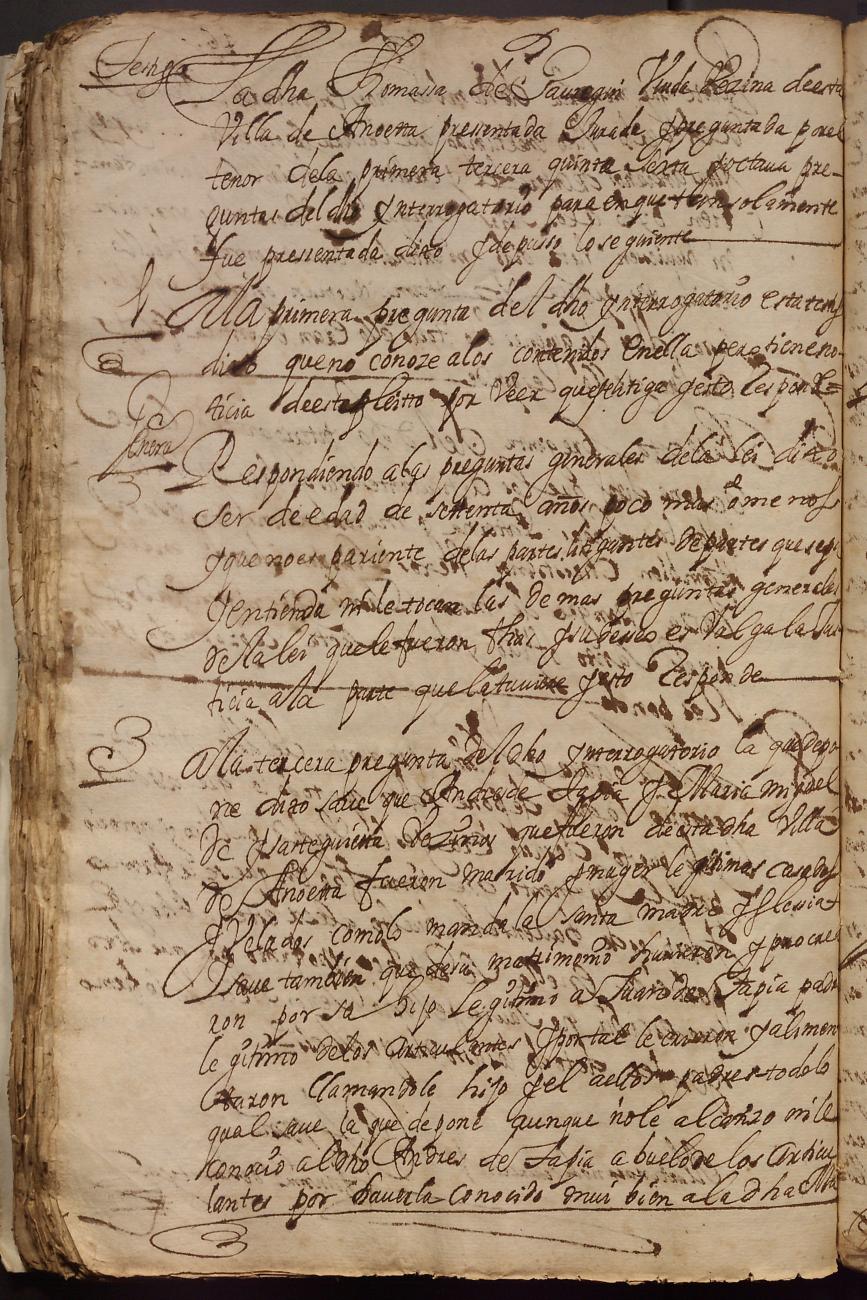 Testigo
La dha Thomassa de Jauregui Viuda Vezina de esta
Villa de Anoetta presentada Jurada y preguntada por el
tenor de la primera tercera quinta sexta y octaua pre-
guntas del dho Ynterrogatorio para en que tan solamente
fue presentada dixo y depusso lo seguiente
1 A la primera pregunta del dho Ynterrogatorio esta testigo
dixo que no conoze a los contenidos en ella pero tiene no-
ticia de este pleitto por Veer que es testigo y esto Responde
Respondiendo a las preguntas generales de la lei dixo
ser de edad de settenta años poco mas o menos
y que no es pariente de las partes litigantes de partes que sepa
y entienda ni le tocan las demas preguntas generales
de la lei que le fueron fhas y su desseo es Valga la Jus
ticia a la parte que la tuuiere y esto Responde
3 A la tercera pregunta del dho Ynterrogatorio la que depo
ne dixo saue que Andres de Tapia y Maria Miguel
de Vezinos que fueron de esta dha Villa
de Anoetta fueron marido y muger legitimos casados
y Velados como lo manda la santa madre Yglesia
y saue tambien que de su matrimonio huuieron y procrea
ron por su hijo legitimo a Juan de Tapia padre
legitimo de los Articulantes y por tal le criaron y alimen
taron llamandole hijo y el a ellos padres todo lo
qual saue la que depone aunque no le alcanzo ni le
conozio al dho Andres de Tapia abuelo de los Articu
lantes por hauerla conozido mui bien a la dha Ma